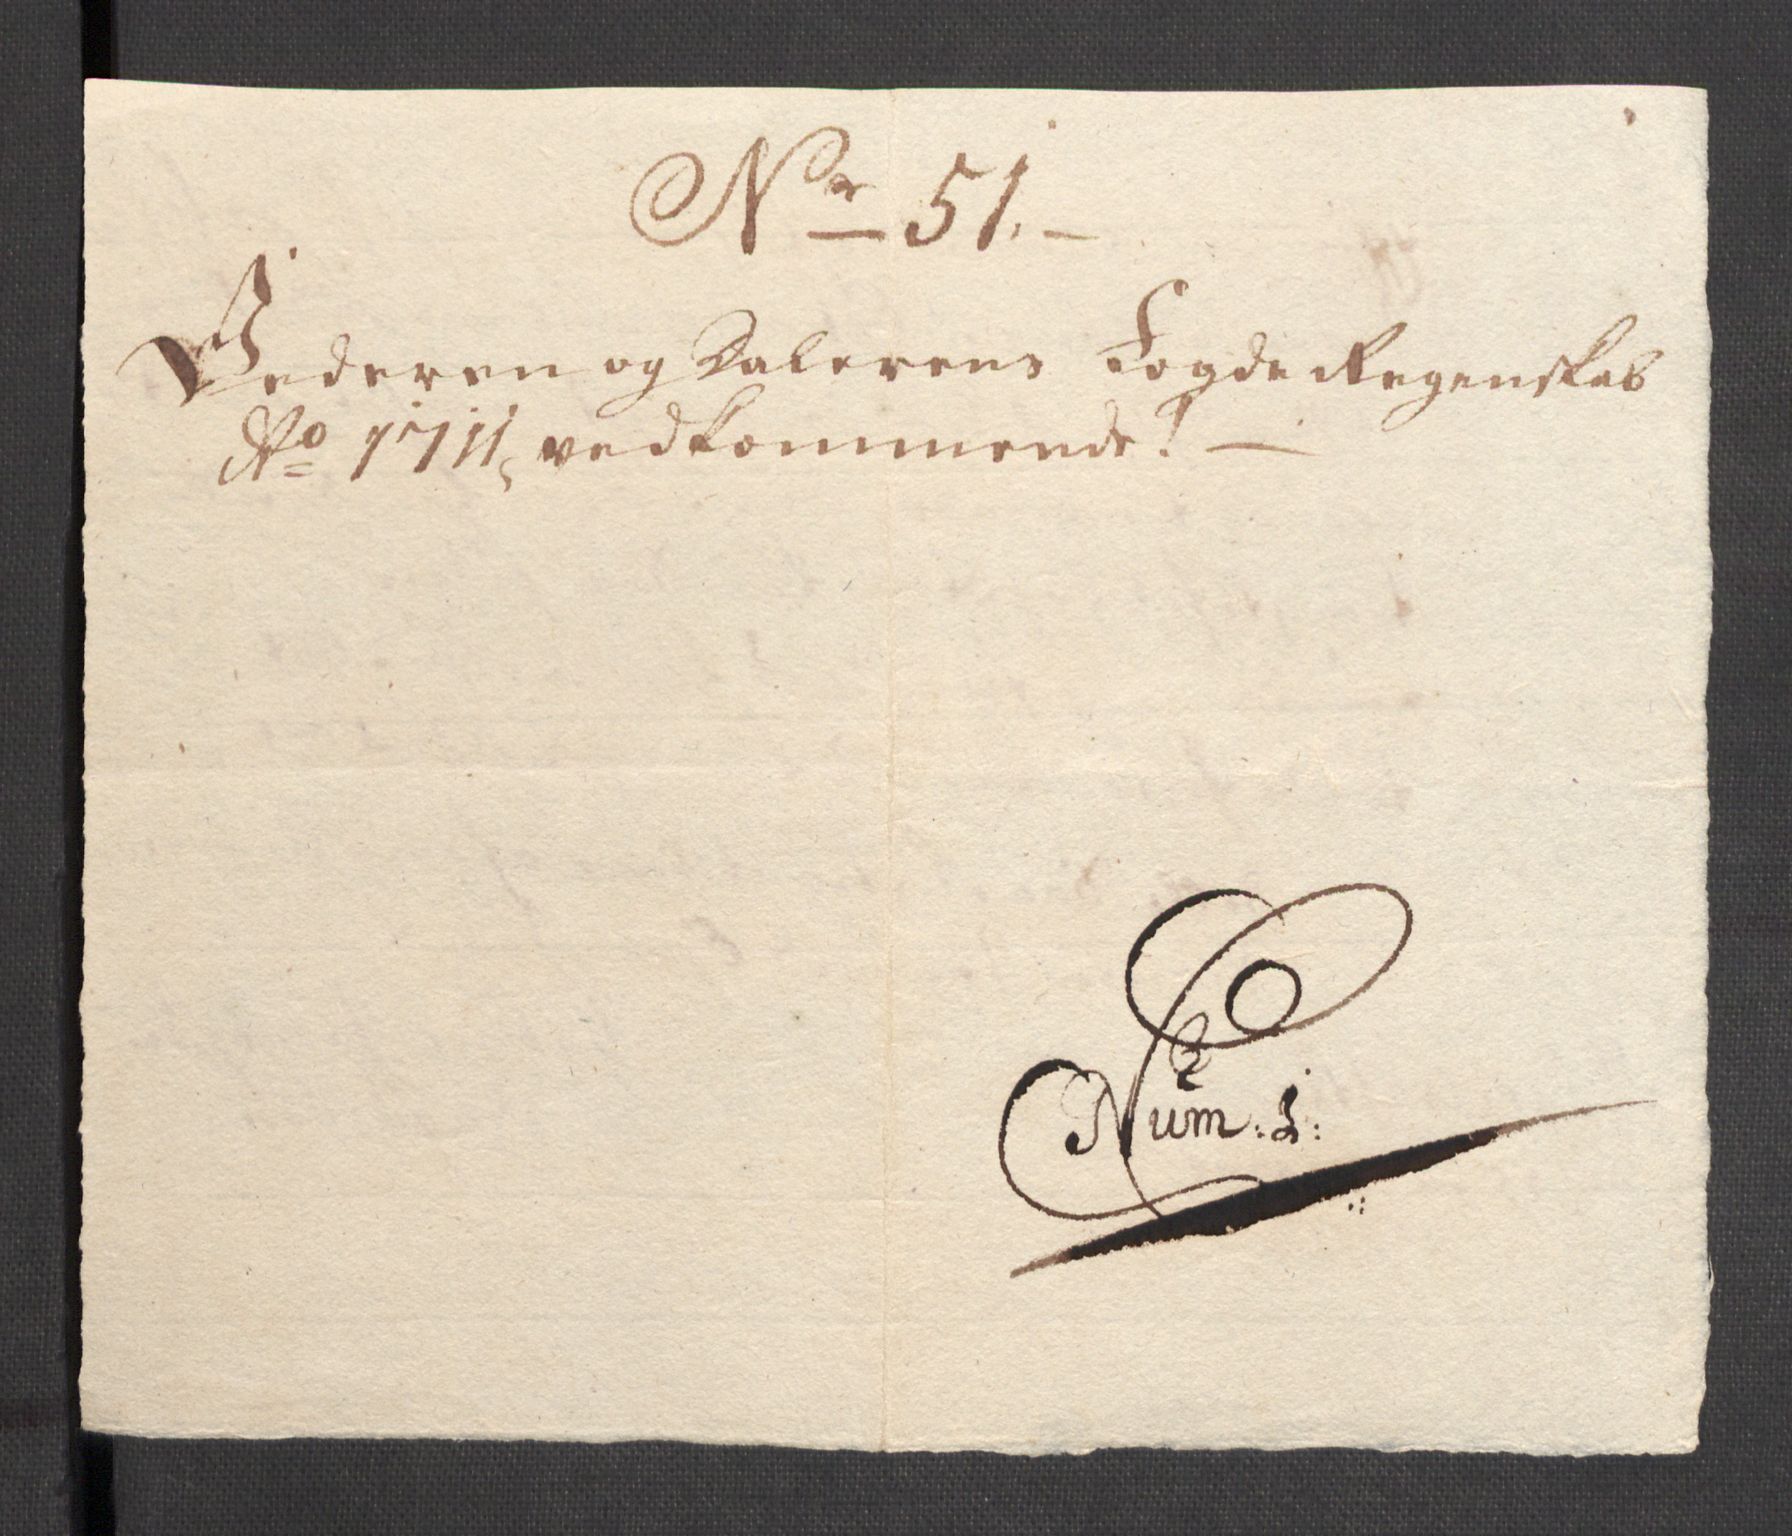 Nr 51.
Jederen og Dalernes Fogde Regenskab
Ao 1711, vedkommende!
Num. 1: